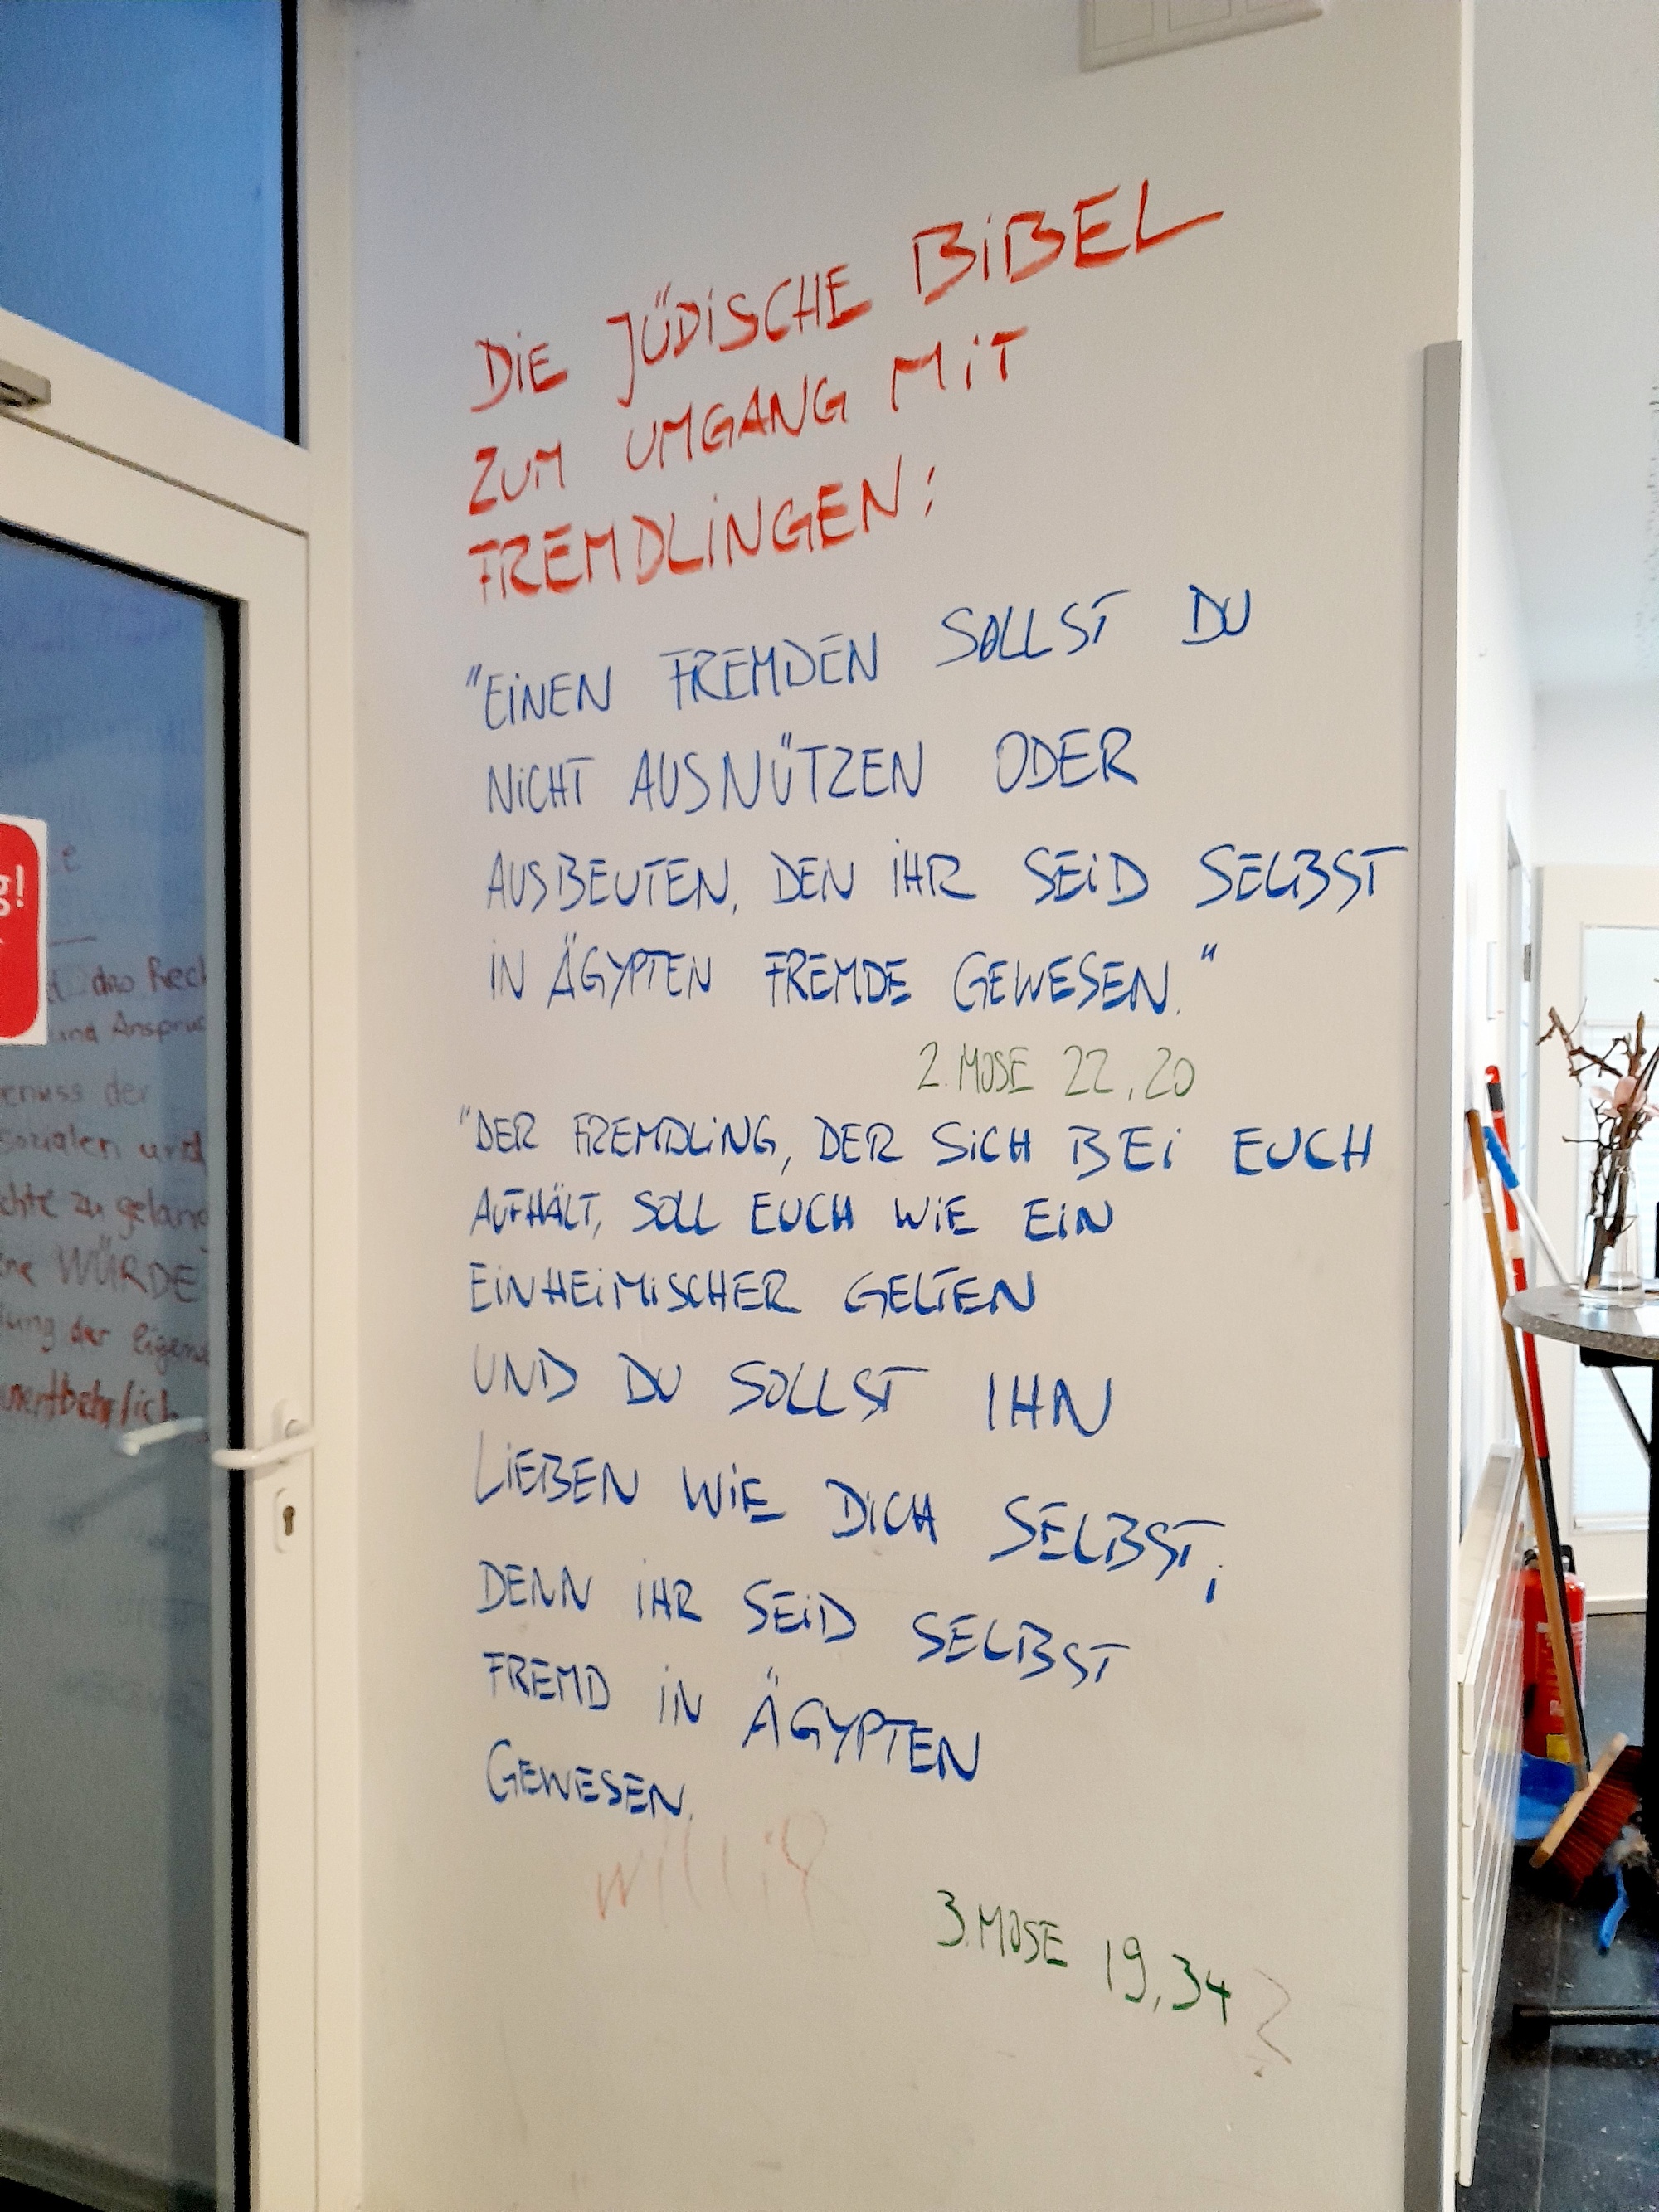 DIE JÜDISCHE BIBEL
ZUM UMGANG MIT
FREMDLINGEN:
"EINEN FREMDEN SOLLST DU
NICHT AUSNÜTZEN ODER
AUSBEUTEN, DEN IHR SEID SELBST
IN ÄGYPTEN FREMDE GEWESEN."
2. MOSE 22,20
"DER FREMDLING, DER SICH BEI EUCH
AUFHÄLT, SOLL EUCH WIE EIN
EINHEIMISCHER GELTEN
UND DU SOLLST IHN
LIEBEN WIE DICH SELBST;
DENN IHR SEID SELBST
FREMD IN ÄGYPTEN
GEWESEN.
3. MOSE 19,34
g!
e
das Rech
und Anspruc
enuss der
sozialen und
chte zu gelang
ne WÜRDE
lung der eigene
unentbehrlich